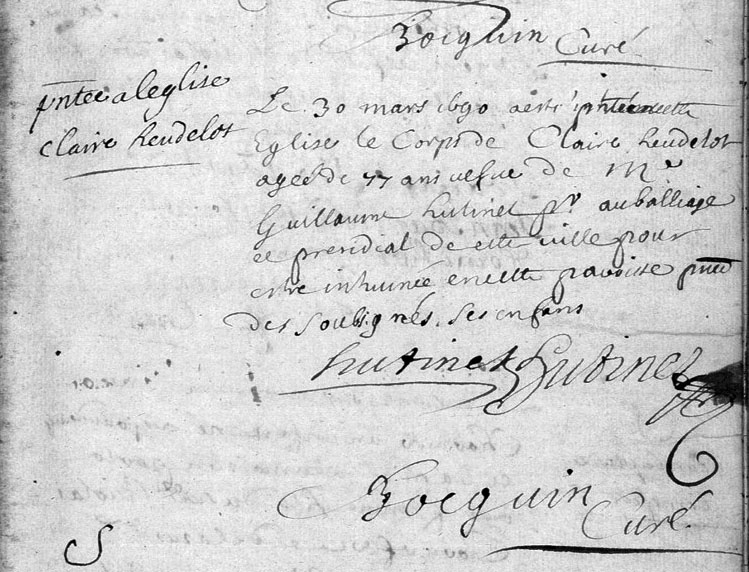 Jocquin Curé
pntee a leglise
Claire heudelot
Le 30 mars 1690 a esté pntée en cette
Eglise le Corps de Claire heudelot
agee de 77 ans vefve de Mr
Guillaume hutinet pr au balliage
et presidial de cette ville pour
estre inhumée en cette paroisse pnce
des soubsignés, ses enfans
hutinet Hutinet
Jocquin
Curé